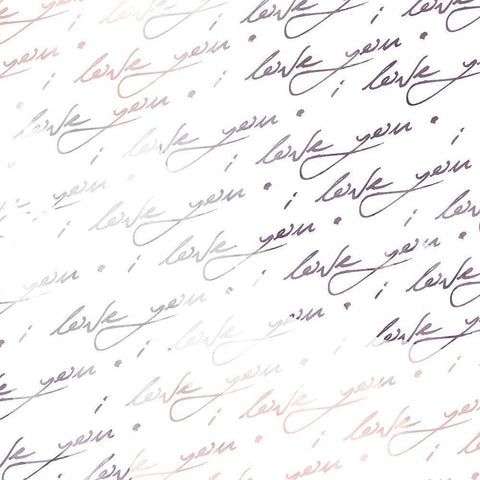 you
love you •
you • i love you
i love you • i love you
love you • i love you • i
you • i love you • i love
i love you • i love you
love you • i love you •
you • i love you • i
i love you • i love you
love you • i love you •
you • i love you • i love
you • i love you
love you • i love you